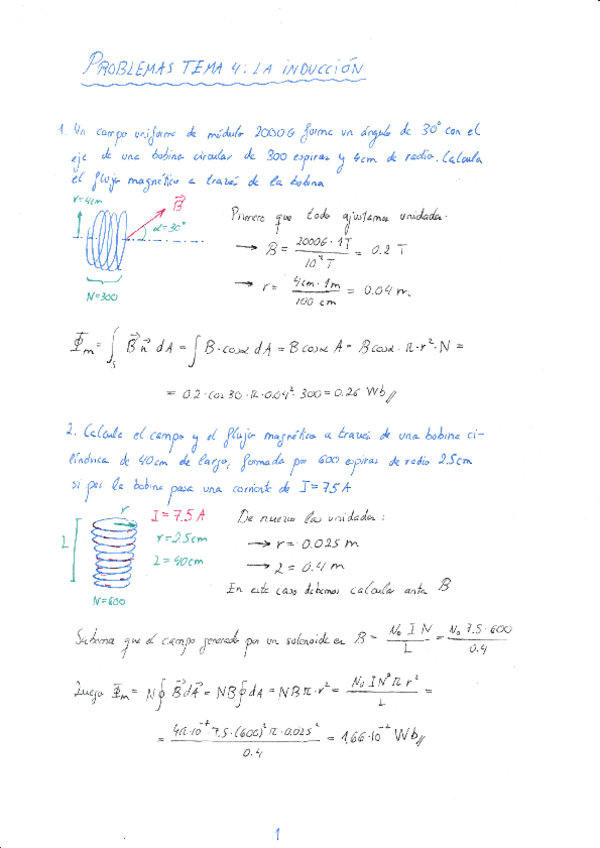 PROBLEMAS TEMA 4: LA INDUCCIÓN
1. Un campo uniforme de módulo 2000G forma un ángulo de 30° con el
eje de una bobina circular de 300 espiras y 4cm de radio. Calcula
el flujo magnético a través de la bobina
r=4cm
B⃗
α=30°
N=300
Primero que todo ajustamos unidades.
→ B = 2000G · 1T / 10⁴ T = 0.2 T
→ r = 4cm · 1m / 100 cm = 0.04 m
Φm = ∫s B⃗ n⃗ dA = ∫ B·cosα dA = B cosα A = B cosα · π · r² · N =
= 0.2 · cos 30 · π · 0.04² · 300 = 0.26 Wb//
2. Calcula el campo y el flujo magnético a través de una bobina ci-
líndrica de 40cm de largo, formada por 600 espiras de radio 2.5cm
si por la bobina pasa una corriente de I = 7.5 A
r
L
I = 7.5 A
r=2.5cm
L=40cm
N=600
De nuevo las unidades:
→ r = 0.025 m
→ L = 0.4 m
En este caso debemos calcular antes B
Sabemos que el campo generado por un solenoide es B = N₀ I N / L = N₀ 7.5 · 600 / 0.4
Luego Φm = N ∮ B⃗ dA⃗ = NB ∮ dA = NBπ · r² = N₀ I N² π r² / L =
= 4π·10⁻⁷ · 7.5 · (600)² π · 0.025² / 0.4 = 1,66·10⁻² Wb//
1